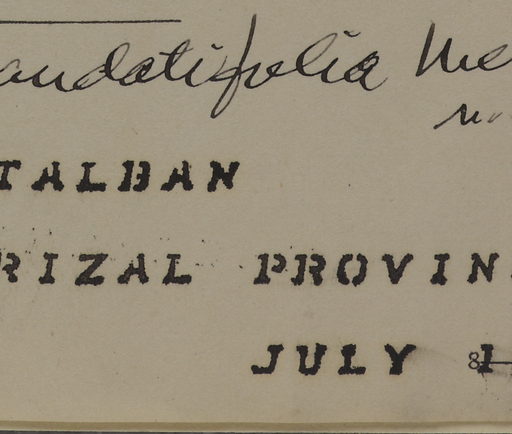 audatifolia Me
TALBAN
RIZAL PROVIN
JULY 1